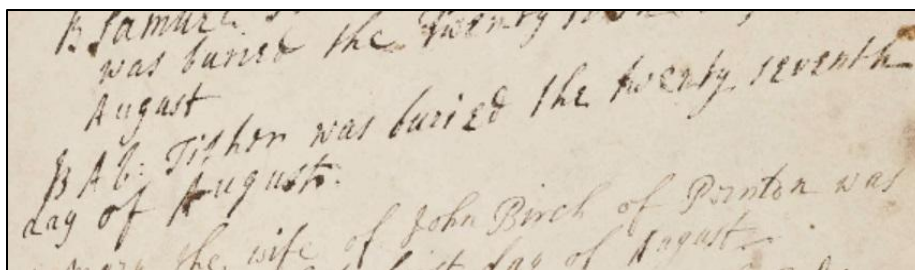 B Samuel
was buried the Twenty
August
B Ab: Tisher was buried the twenty seventh
day of August.
Mary the wife of John Birch of Pointon was
day of August